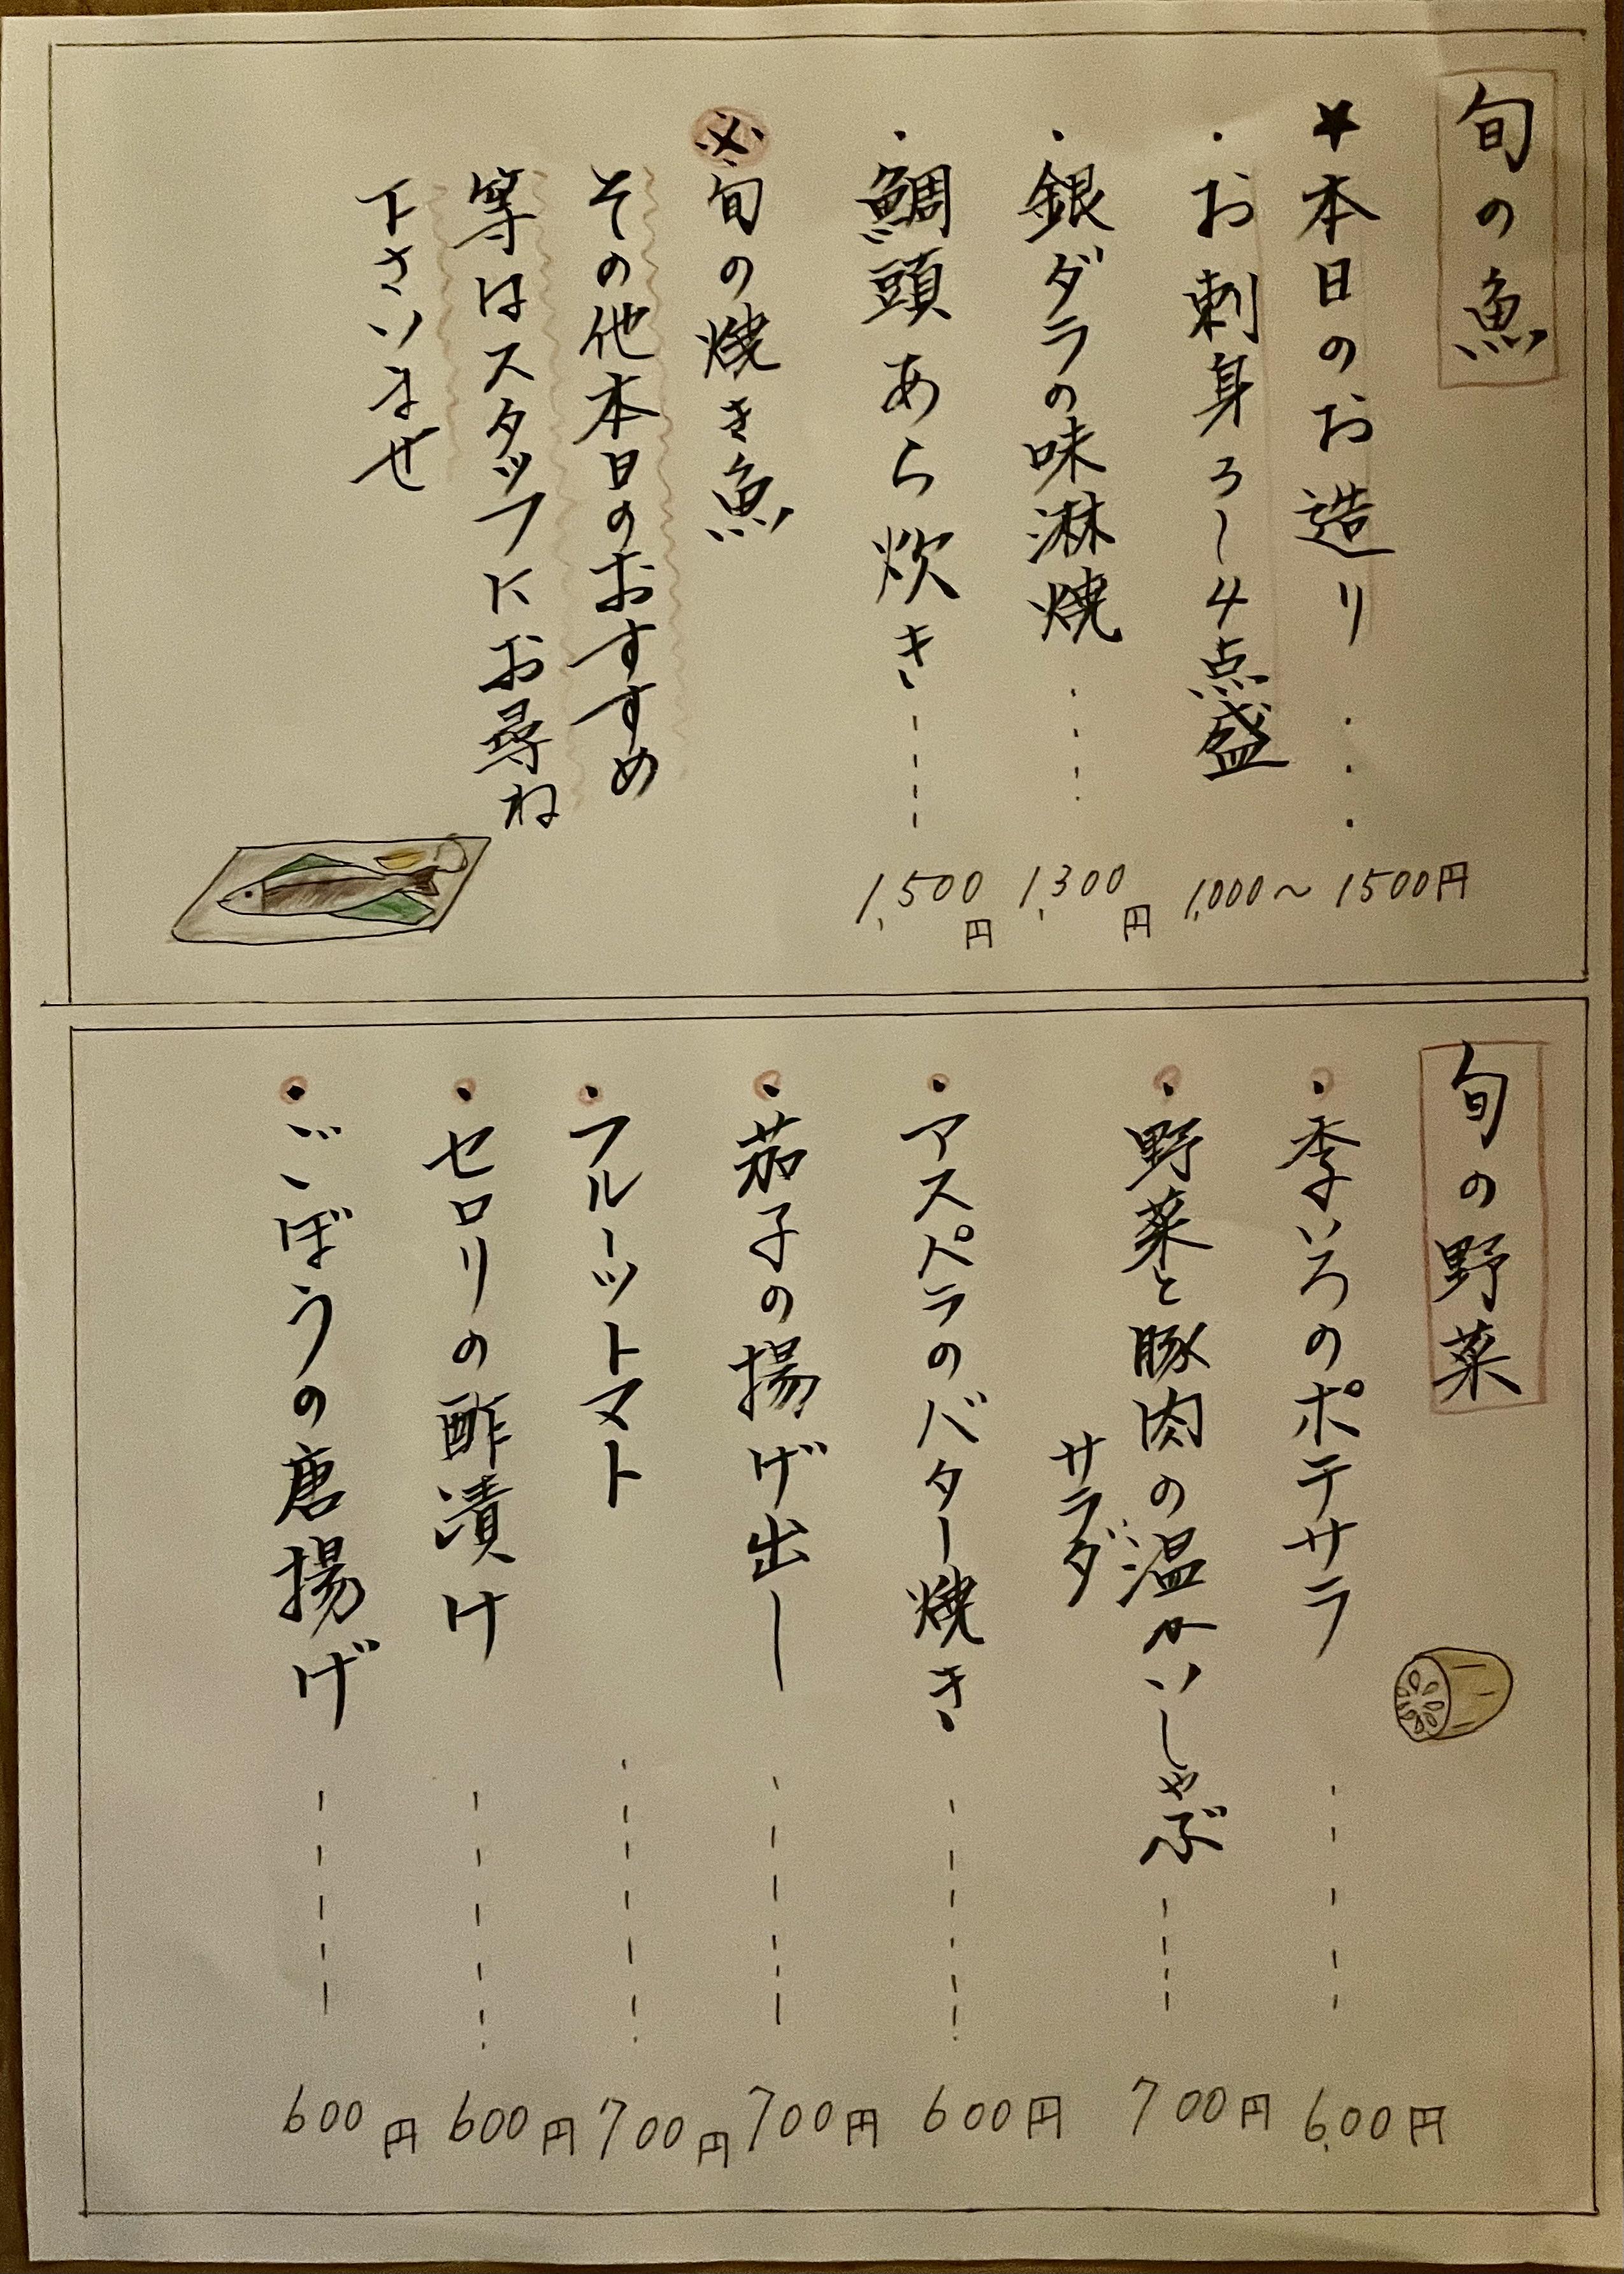 旬の魚
★本日のお造り・・・
・お刺身3〜4点盛
1,000〜1500円
・銀ダラの味淋焼・・・・
1,300円
・鯛頭あら炊き・・・・
1,500円
※旬の焼き魚
その他本日のおすすめ
等はスタッフにお尋ね
下さいませ
旬の野菜
・季いろのポテサラ
600円
・野菜と豚肉の温かいしゃぶ
サラダ
700円
・アスパラのバター焼き
600円
・茄子の揚げ出し
700円
・フルーツトマト
700円
・セロリの酢漬け
600円
・ごぼうの唐揚げ
600円